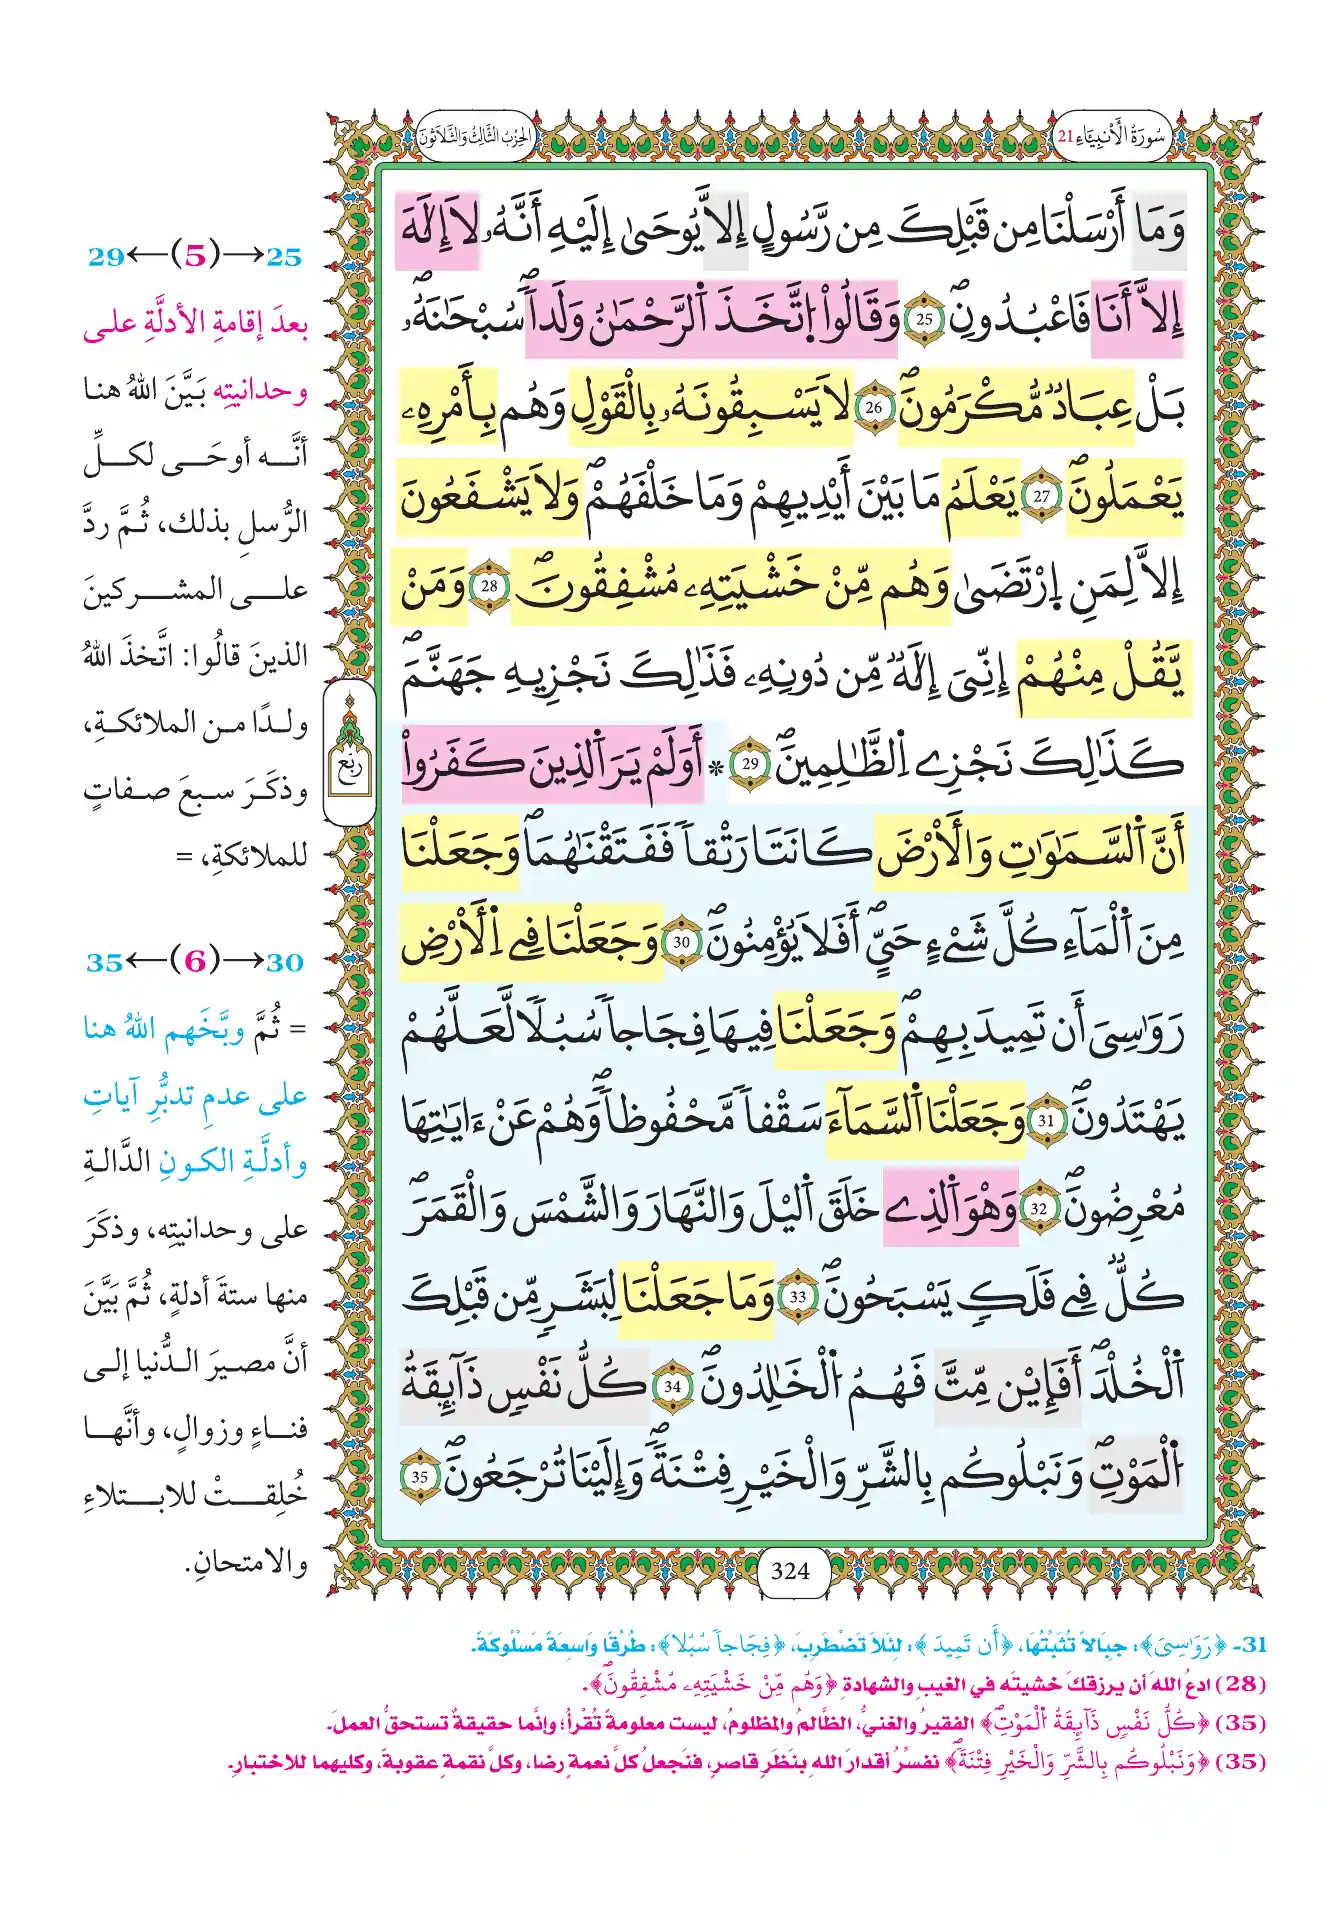 سُورَةُ الأَنْبِيَاءِ 21
الحِزْبُ الثَّالِثُ وَالثَّلَاثُونَ
وَمَا أَرْسَلْنَا مِن قَبْلِكَ مِن رَّسُولٍ إِلاَّ يُوحَىٰ إِلَيْهِ أَنَّهُۥ لَا إِلَٰهَ
إِلاَّ أَنَا فَاعْبُدُونِۖ 25 وَقَالُواْ اُ۪تَّخَذَ اَ۬لرَّحْمَٰنُ وَلَداٗۖ سُبْحَٰنَهُۥۖ
بَلْ عِبَادٞ مُّكْرَمُونَۖ 26 لَا يَسْبِقُونَهُۥ بِالْقَوْلِ وَهُم بِأَمْرِهِۦ
يَعْمَلُونَۖ 27 يَعْلَمُ مَا بَيْنَ أَيْدِيهِمْ وَمَا خَلْفَهُمْۖ وَلَا يَشْفَعُونَ
إِلاَّ لِمَنِ اِ۪رْتَضَىٰ وَهُم مِّنْ خَشْيَتِهِۦ مُشْفِقُونَۖ 28 وَمَنْ
يَّقُلْ مِنْهُمْ إِنِّيَ إِلَٰهٞ مِّن دُونِهِۦ فَذَٰلِكَ نَجْزِيهِ جَهَنَّمَۖ
كَذَٰلِكَ نَجْزِے اِ۬لظَّٰلِمِينَۖ 29 * أَوَلَمْ يَرَ اَ۬لذِينَ كَفَرُواْ
أَنَّ اَ۬لسَّمَٰوَٰتِ وَالْأَرْضَ كَانَتَا رَتْقاٗ فَفَتَقْنَٰهُمَاۖ وَجَعَلْنَا
مِنَ اَ۬لْمَآءِ كُلَّ شَےْءٍ حَيٍّۖ أَفَلَا يُؤْمِنُونَۖ 30 وَجَعَلْنَا فِے اِ۬لْأَرْضِ
رَوَٰسِيَ أَن تَمِيدَ بِهِمْۖ وَجَعَلْنَا فِيهَا فِجَاجاٗ سُبُلاٗ لَّعَلَّهُمْ
يَهْتَدُونَۖ 31 وَجَعَلْنَا اَ۬لسَّمَآءَ سَقْفاٗ مَّحْفُوظاٗۖ وَهُمْ عَنْ ءَايَٰتِهَا
مُعْرِضُونَۖ 32 وَهُوَ اَ۬لذِے خَلَقَ اَ۬ليْلَ وَالنَّهَارَ وَالشَّمْسَ وَالْقَمَرَۖ
كُلّٞ فِے فَلَكٖ يَسْبَحُونَۖ 33 وَمَا جَعَلْنَا لِبَشَرٖ مِّن قَبْلِكَ
اَ۬لْخُلْدَۖ أَفَإِيْن مِّتَّ فَهُمُ اُ۬لْخَٰلِدُونَۖ 34 كُلُّ نَفْسٖ ذَآئِقَةُ
اُ۬لْمَوْتِۖ وَنَبْلُوكُم بِالشَّرِّ وَالْخَيْرِ فِتْنَةٗۖ وَإِلَيْنَا تُرْجَعُونَۖ 35
324
ربع
25→(5)←29
بعدَ إقامةِ الأدلَّةِ على
وحدانيتِه بَيَّنَ اللهُ هنا
أنَّه أوحَى لكلِّ
الرُّسلِ بذلك، ثُمَّ ردَّ
على المشركينَ
الذينَ قالُوا: اتَّخذَ اللهُ
ولدًا من الملائكةِ،
وذكَرَ سبعَ صفاتٍ
للملائكةِ، =
30→(6)←35
= ثُمَّ وبَّخَهم اللهُ هنا
على عدمِ تدبُّرِ آياتِ
وأدلَّةِ الكونِ الدَّالةِ
على وحدانيتِه، وذكَرَ
منها ستةَ أدلةٍ، ثُمَّ بيَّنَ
أنَّ مصيرَ الدُّنيا إلى
فناءٍ وزوالٍ، وأنَّها
خُلِقتْ للابتلاءِ
والامتحانِ.
31- ﴿رَوَٰسِيَ﴾: جِبَالاً تُثَبِّتُهَا، ﴿أَن تَمِيدَ﴾: لِئَلاَّ تَضْطَرِبَ، ﴿فِجَاجاٗ سُبُلاٗ﴾: طُرُقًا وَاسِعَةً مَسْلُوكَةً.
(28) ادعُ اللهَ أن يرزقكَ خشيتَه في الغيبِ والشهادةِ ﴿وَهُم مِّنْ خَشْيَتِهِۦ مُشْفِقُونَۖ﴾.
(35) ﴿كُلُّ نَفْسٖ ذَآئِقَةُ اُ۬لْمَوْتِۖ﴾ الفقيرُ والغنيُّ، الظَّالمُ والمظلومُ، ليست معلومةً تُقْرأُ؛ وإنَّما حقيقةٌ تستحقُّ العملَ.
(35) ﴿وَنَبْلُوكُم بِالشَّرِّ وَالْخَيْرِ فِتْنَةٗۖ﴾ نفسِّرُ أقدارَ اللهِ بنَظَرٍ قاصرٍ، فنَجعلُ كلَّ نعمةٍ رضا، وكلَّ نقمةٍ عقوبةً، وكليهما للاختبارِ.